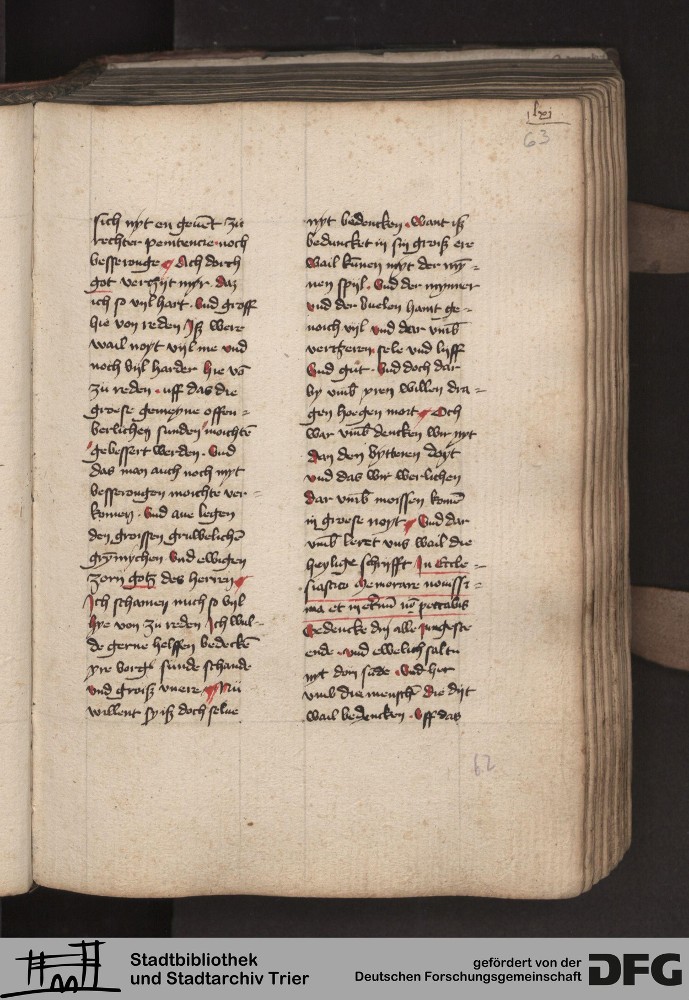 lxj
63
sich nyt en geuēt zü
rechter penitencie noch
besseronge Ach dorch
got verzijt myr daz
ich so vijl hart. Vnd groff
hie von reden Jß were
wail noyt vijl me vnd
noch vijl harder hie vō
zü reden. uff das die
groese gemeyne offen-
berlichen sunden moichtē
gebessert werden. Vnd
das man auch noch myt
besserongen moichte ver-
komen. Vnd aue legen
den groissen gruwelichē
Vnd ewigen
zorn gotz des herren
Jch schamen mich so vijl
hye von zü reden Jch wul-
de gerne helffen bedeckē
yre sunde schande
vnd groiß vneere Nü
willent sy iß doch selue
nyt bedencken. Want iß
beduncket in sin groiß ere
wail künen myt der mȳ-
nen spijl. Vnd der mynner
vnd der buelen hant ge-
noich vijl vnd dar vmb
vertzeren sele vnd lijff
Vnd güt. Vnd doch dar
by vmb yren willen dra-
gen hoegen mort Och
war vmb dencken wir nyt
dan den bytteren doyt
vnd das wir werlichen
dar vmb moissen komē
in groese noyt Vnd dar
vmb leret vns wail die
heylige schrijfft Jn Eccle-
siastico Memorare nouissi-
ma et in et̄nū nō peccabis
Gedencke dyn alle jungeste
ende. vnd ewelich saltu
nyt don sūde. Vnd hie
vmb die mensch die dijt
wail bedencken. Vff das
62
Stadtbibliothek
und Stadtarchiv Trier
gefördert von der
Deutschen Forschungsgemeinschaft
DFG